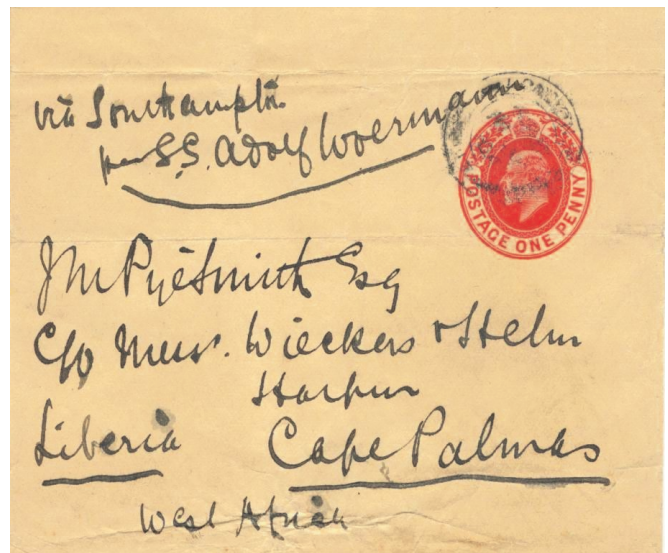 via Southampton
per S.S. Adolf Woermann
POSTAGE ONE PENNY
J M PyeSmith Esq
C/o Messrs. Wieckers & Helm
Harper
Liberia Cape Palmas
West Africa